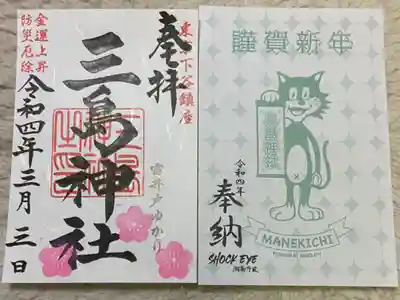 奉拝
東京下谷鎮座
三島神社
金運上昇
防災厄除
令和四年三月三日
雷井戸ゆかり
謹賀新年
令和四年
奉納
SHOCK EYE
湘南乃風
MANEKICHI